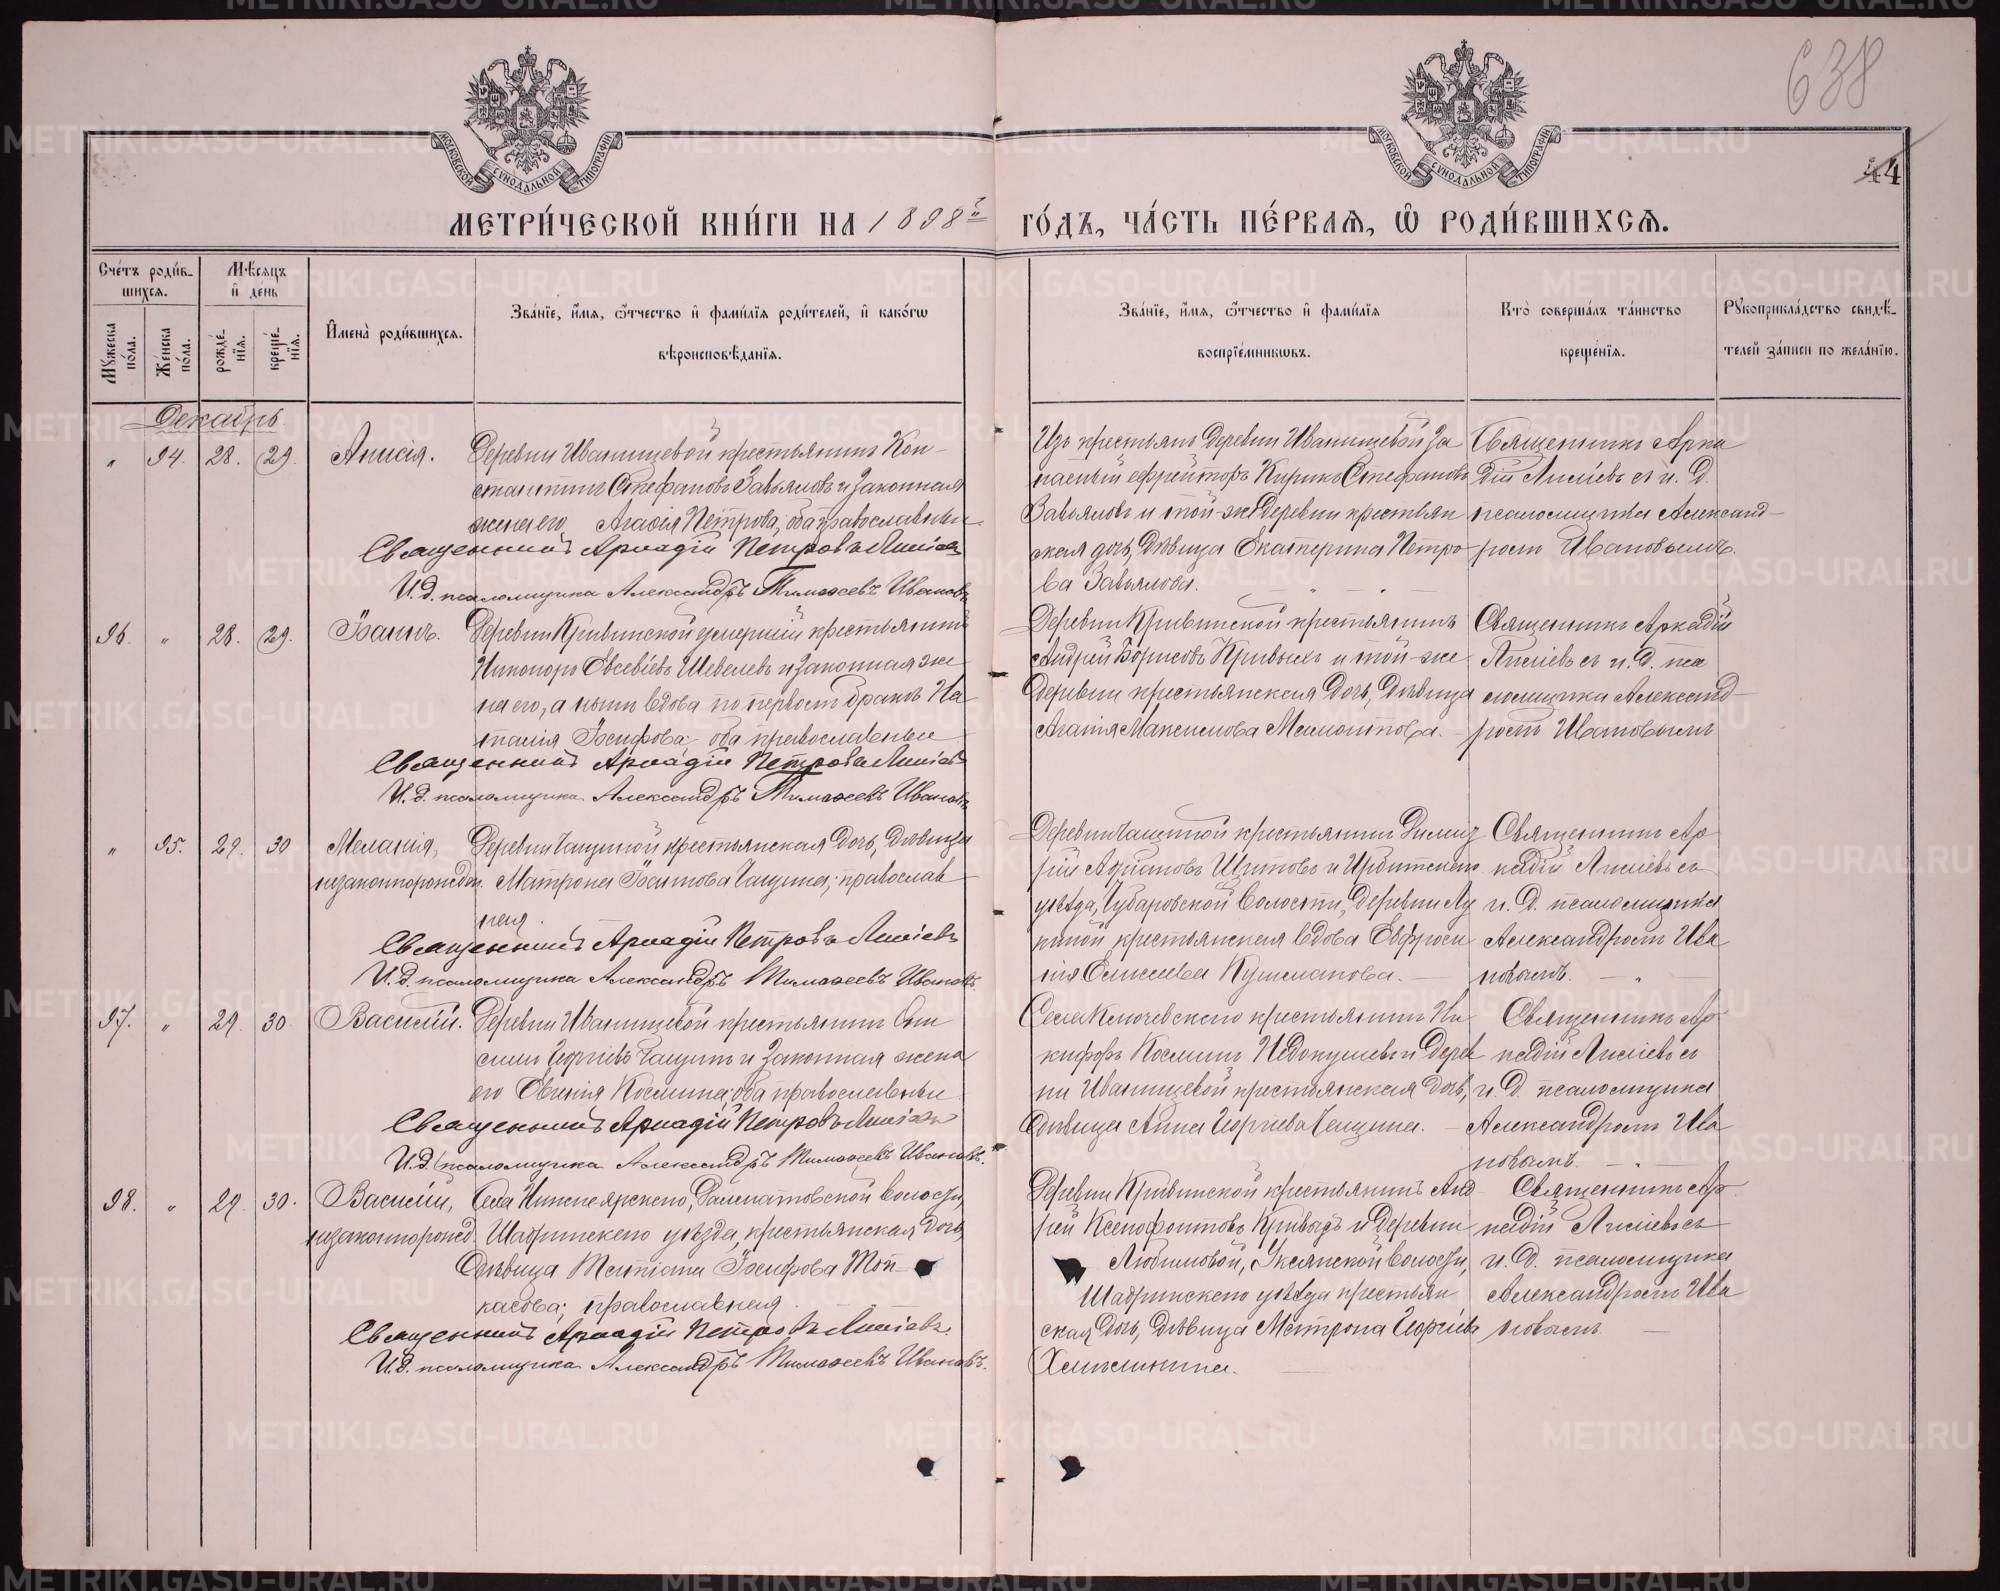 638
44
МОСКОВСКОЙ СѴНОДАЛЬНОЙ ТИПОГРАФІИ
МОСКОВСКОЙ СѴНОДАЛЬНОЙ ТИПОГРАФІИ
МЕТРИ́ЧЕСКОЙ КНИ́ГИ НА 1898й ГО́ДЪ, ЧА́СТЬ ПЕ́РВАѦ, Ѡ҆ РОДИ́ВШИХСѦ.
Сче́тъ роди́в-
шихсѧ.
Мꙋжеска по́ла.
Же́нска по́ла.
Мѣ́сѧцъ
и҆ де́нь
рожде́нїѧ.
креще́нїѧ.
И҆мена̀ роди́вшихсѧ.
Зва́нїе, и҆́мѧ, ѻ҆́тчество и҆ фами́лїѧ роди́телей, и҆ како́гѡ
вѣроисповѣ́данїѧ.
Зва́нїе, и҆́мѧ, ѻ҆́тчество и҆ фами́лїѧ
воспрїе́мникѡвъ.
Кто̀ соверша́лъ та́инство
креще́нїѧ.
Рꙋкоприкла́дство свидѣ́-
телей за́писи по жела́нїю.
Декабрь
" 94. 28. 29. Анисія.
Деревни Иванищевой крестьянинъ Кон-
стантинъ Стефановъ Завьяловъ и законная
жена его Агафія Петрова, оба православные
Священникъ Аркадій Петровъ Лисіевъ
И.д. псаломщика Александръ Тимофеевъ Ивановъ
Изъ крестьянъ деревни Иванищевой за
пасный ефрейторъ Кирикъ Стефановъ
Завьяловъ и той-же деревни крестьян
ская дочь, девица Екатерина Петро
ва Завьялова.
Священникъ Арка
дій Лисіевъ съ и. д.
псаломщика Александ-
ромъ Ивановымъ.
96. " 28. 29. Іоаннъ.
Деревни Кривинской умершій крестьянинъ
Никоноръ Евсевіевъ Шевелевъ и законная же
на его, а ныне вдова по первомъ браке На
талія Іосифова, оба православные
Священникъ Аркадій Петровъ Лисіевъ
И.д. псаломщика Александръ Тимофеевъ Ивановъ
Деревни Кривинской крестьянинъ
Андрей Борисовъ Кривыхъ и той-же
деревни крестьянская дочь, девица
Агапія Максимова Мамонтова.
Священникъ Аркадій
Лисіевъ съ и. д. пса
ломщика Александ-
ромъ Ивановымъ
" 95. 29. 30 Меланія,
незаконнорожден.
Деревни Чащиной крестьянская дочь, девица
Матрона Чащина; православ
ная.
Священникъ Аркадій Петровъ Лисіевъ
И.д. псаломщика Александръ Тимофеевъ Ивановъ.
Деревни Чащиной крестьянинъ Димит
рій Адріановъ Щитовъ и Ирбитскаго
уезда, Чубаровской волости, деревни
крестьянская вдова Евфроси
нія Елисеева Кушманова.
Священникъ Ар
кадій Лисіевъ съ
и. д. псаломщика
Александромъ Ива
новымъ.
97. " 29. 30. Василій.
Деревни Иванищевой крестьянинъ
Георгіевъ Чащинъ и законная жена
его Евгенія Космина, оба православные.
Священникъ Аркадій Петровъ Лисіевъ
И.д. псаломщика Александръ Тимофеевъ Ивановъ.
Села Ключевскаго крестьянинъ Ни
кифоръ Косминъ и дерев
ни Иванищевой крестьянская дочь,
девица Анна Георгіева Чащина.
Священникъ Ар
кадій Лисіевъ съ
и. д. псаломщика
Александромъ Ива
новымъ.
98. " 29. 30. Василій,
незаконнорожд.
Села Нижнеярскаго, Далматовской волости,
Шадринскаго уезда, крестьянская дочь
девица Татіана Іосифова Топ-
касова; православная
Священникъ Аркадій Петровъ Лисіевъ.
И.д. псаломщика Александръ Тимофеевъ Ивановъ.
Деревни Кривинской крестьянинъ Анд
рей Ксенофонтовъ Кривыхъ и деревни
Любимовой, Уксянской волости,
Шадринскаго уезда крестьян
ская дочь, девица Матрона Георгіева
Священникъ Ар
кадій Лисіевъ съ
и. д. псаломщика
Александромъ Ива
новымъ
METRIKI.GASO-URAL.RU